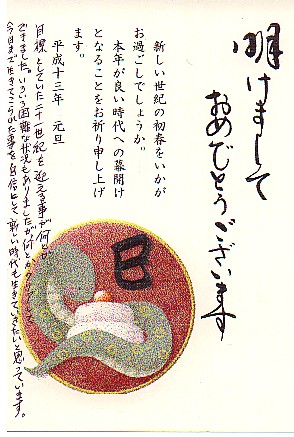 明けまして
おめでとうございます
新しい世紀の初春をいかが
お過ごしでしょうか。
本年が良い時代への幕開け
となることをお祈り申し上げ
ます。
平成十三年　元旦
目標としていた二十一世紀を迎える事が何とか
できました。いろいろ困難な状況もありましたが何とか
今日まで生きてこられた事を自信として新しい時代も生きていきたいと思っています。
巳